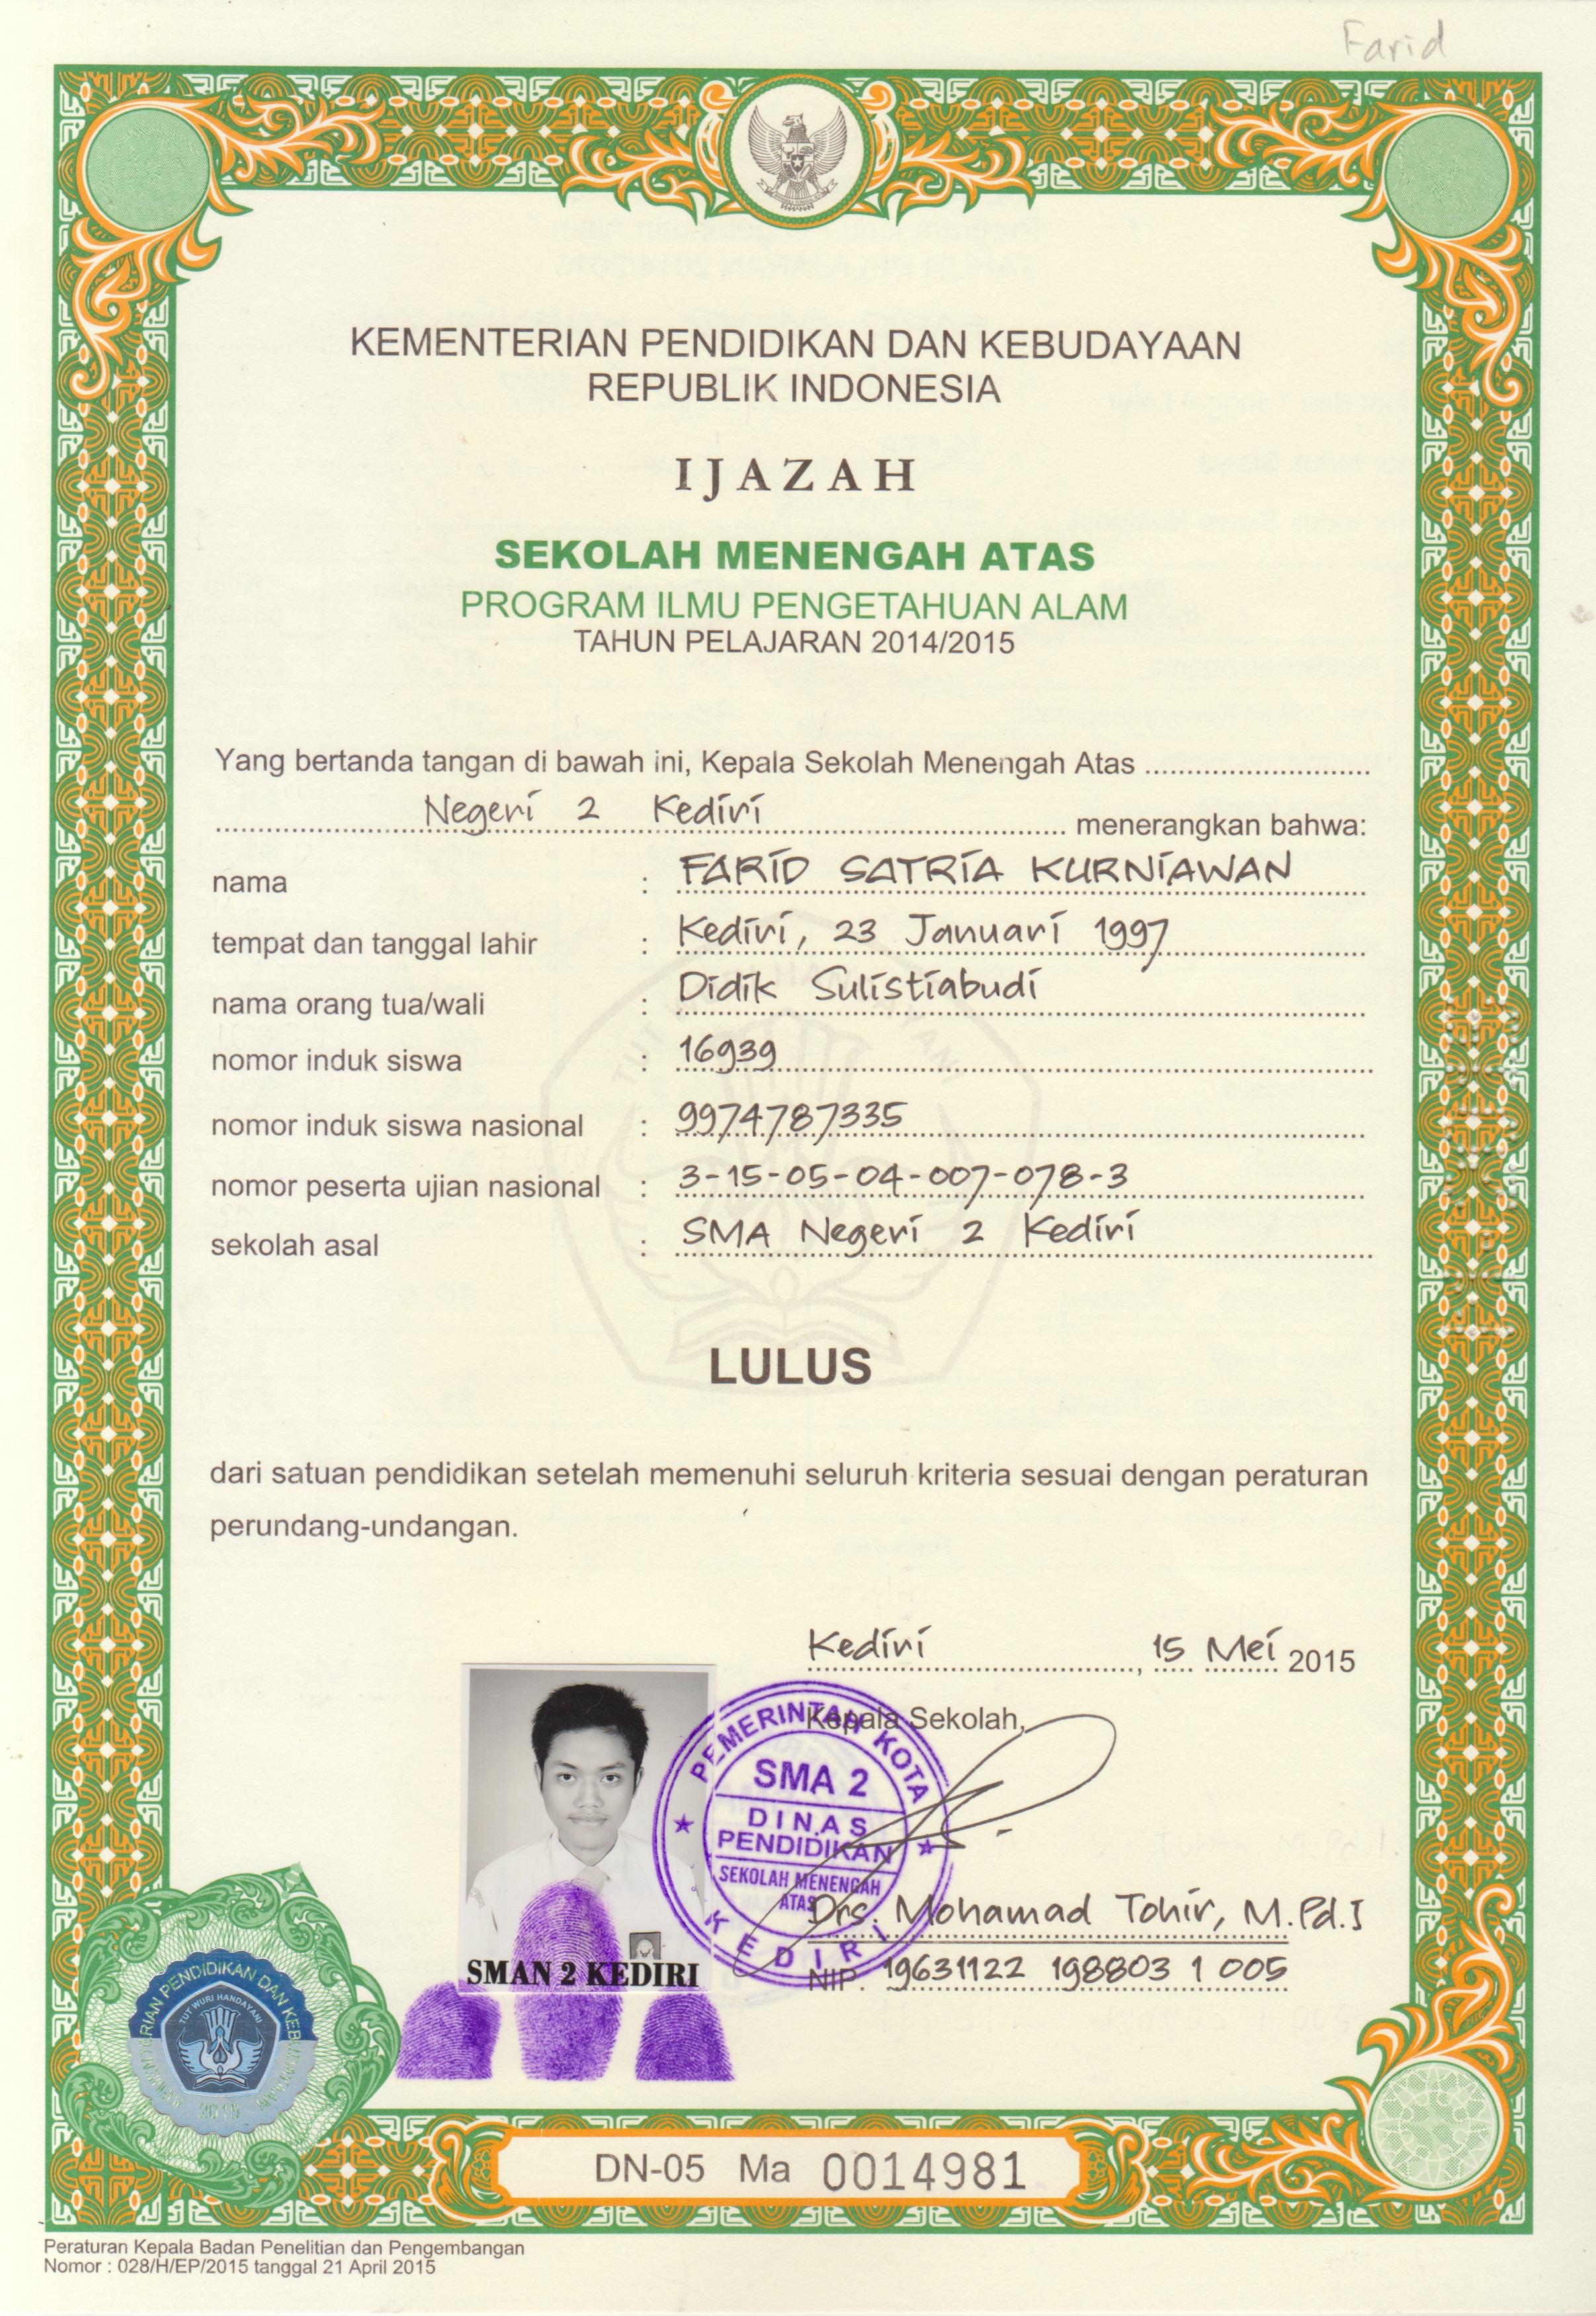 Farid
KEMENTERIAN PENDIDIKAN DAN KEBUDAYAAN
REPUBLIK INDONESIA
IJAZAH
SEKOLAH MENENGAH ATAS
PROGRAM ILMU PENGETAHUAN ALAM
TAHUN PELAJARAN 2014/2015
Yang bertanda tangan di bawah ini, Kepala Sekolah Menengah Atas
Negeri 2 Kediri menerangkan bahwa:
nama : FARID SATRIA KURNIAWAN
tempat dan tanggal lahir : Kediri, 23 Januari 1997
nama orang tua/wali : Didik Sulistiabudi
nomor induk siswa : 16939
nomor induk siswa nasional : 9974787335
nomor peserta ujian nasional : 3-15-05-04-007-078-3
sekolah asal : SMA Negeri 2 Kediri
LULUS
dari satuan pendidikan setelah memenuhi seluruh kriteria sesuai dengan peraturan
perundang-undangan.
Kediri, 15 Mei 2015
Kepala Sekolah,
PEMERINTAH KOTA
SMA 2
DINAS
PENDIDIKAN
SEKOLAH MENENGAH
ATAS
KEDIRI
Drs. Mohamad Tohir, M.Pd.I
NIP. 19631122 198803 1 005
SMAN 2 KEDIRI
TUT WURI HANDAYANI
2015
DN-05 Ma 0014981
Peraturan Kepala Badan Penelitian dan Pengembangan
Nomor : 028/H/EP/2015 tanggal 21 April 2015